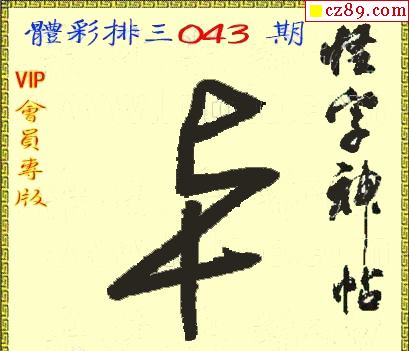 cz89.com
體彩排三043 期
VIP
會員專版
怪字神帖